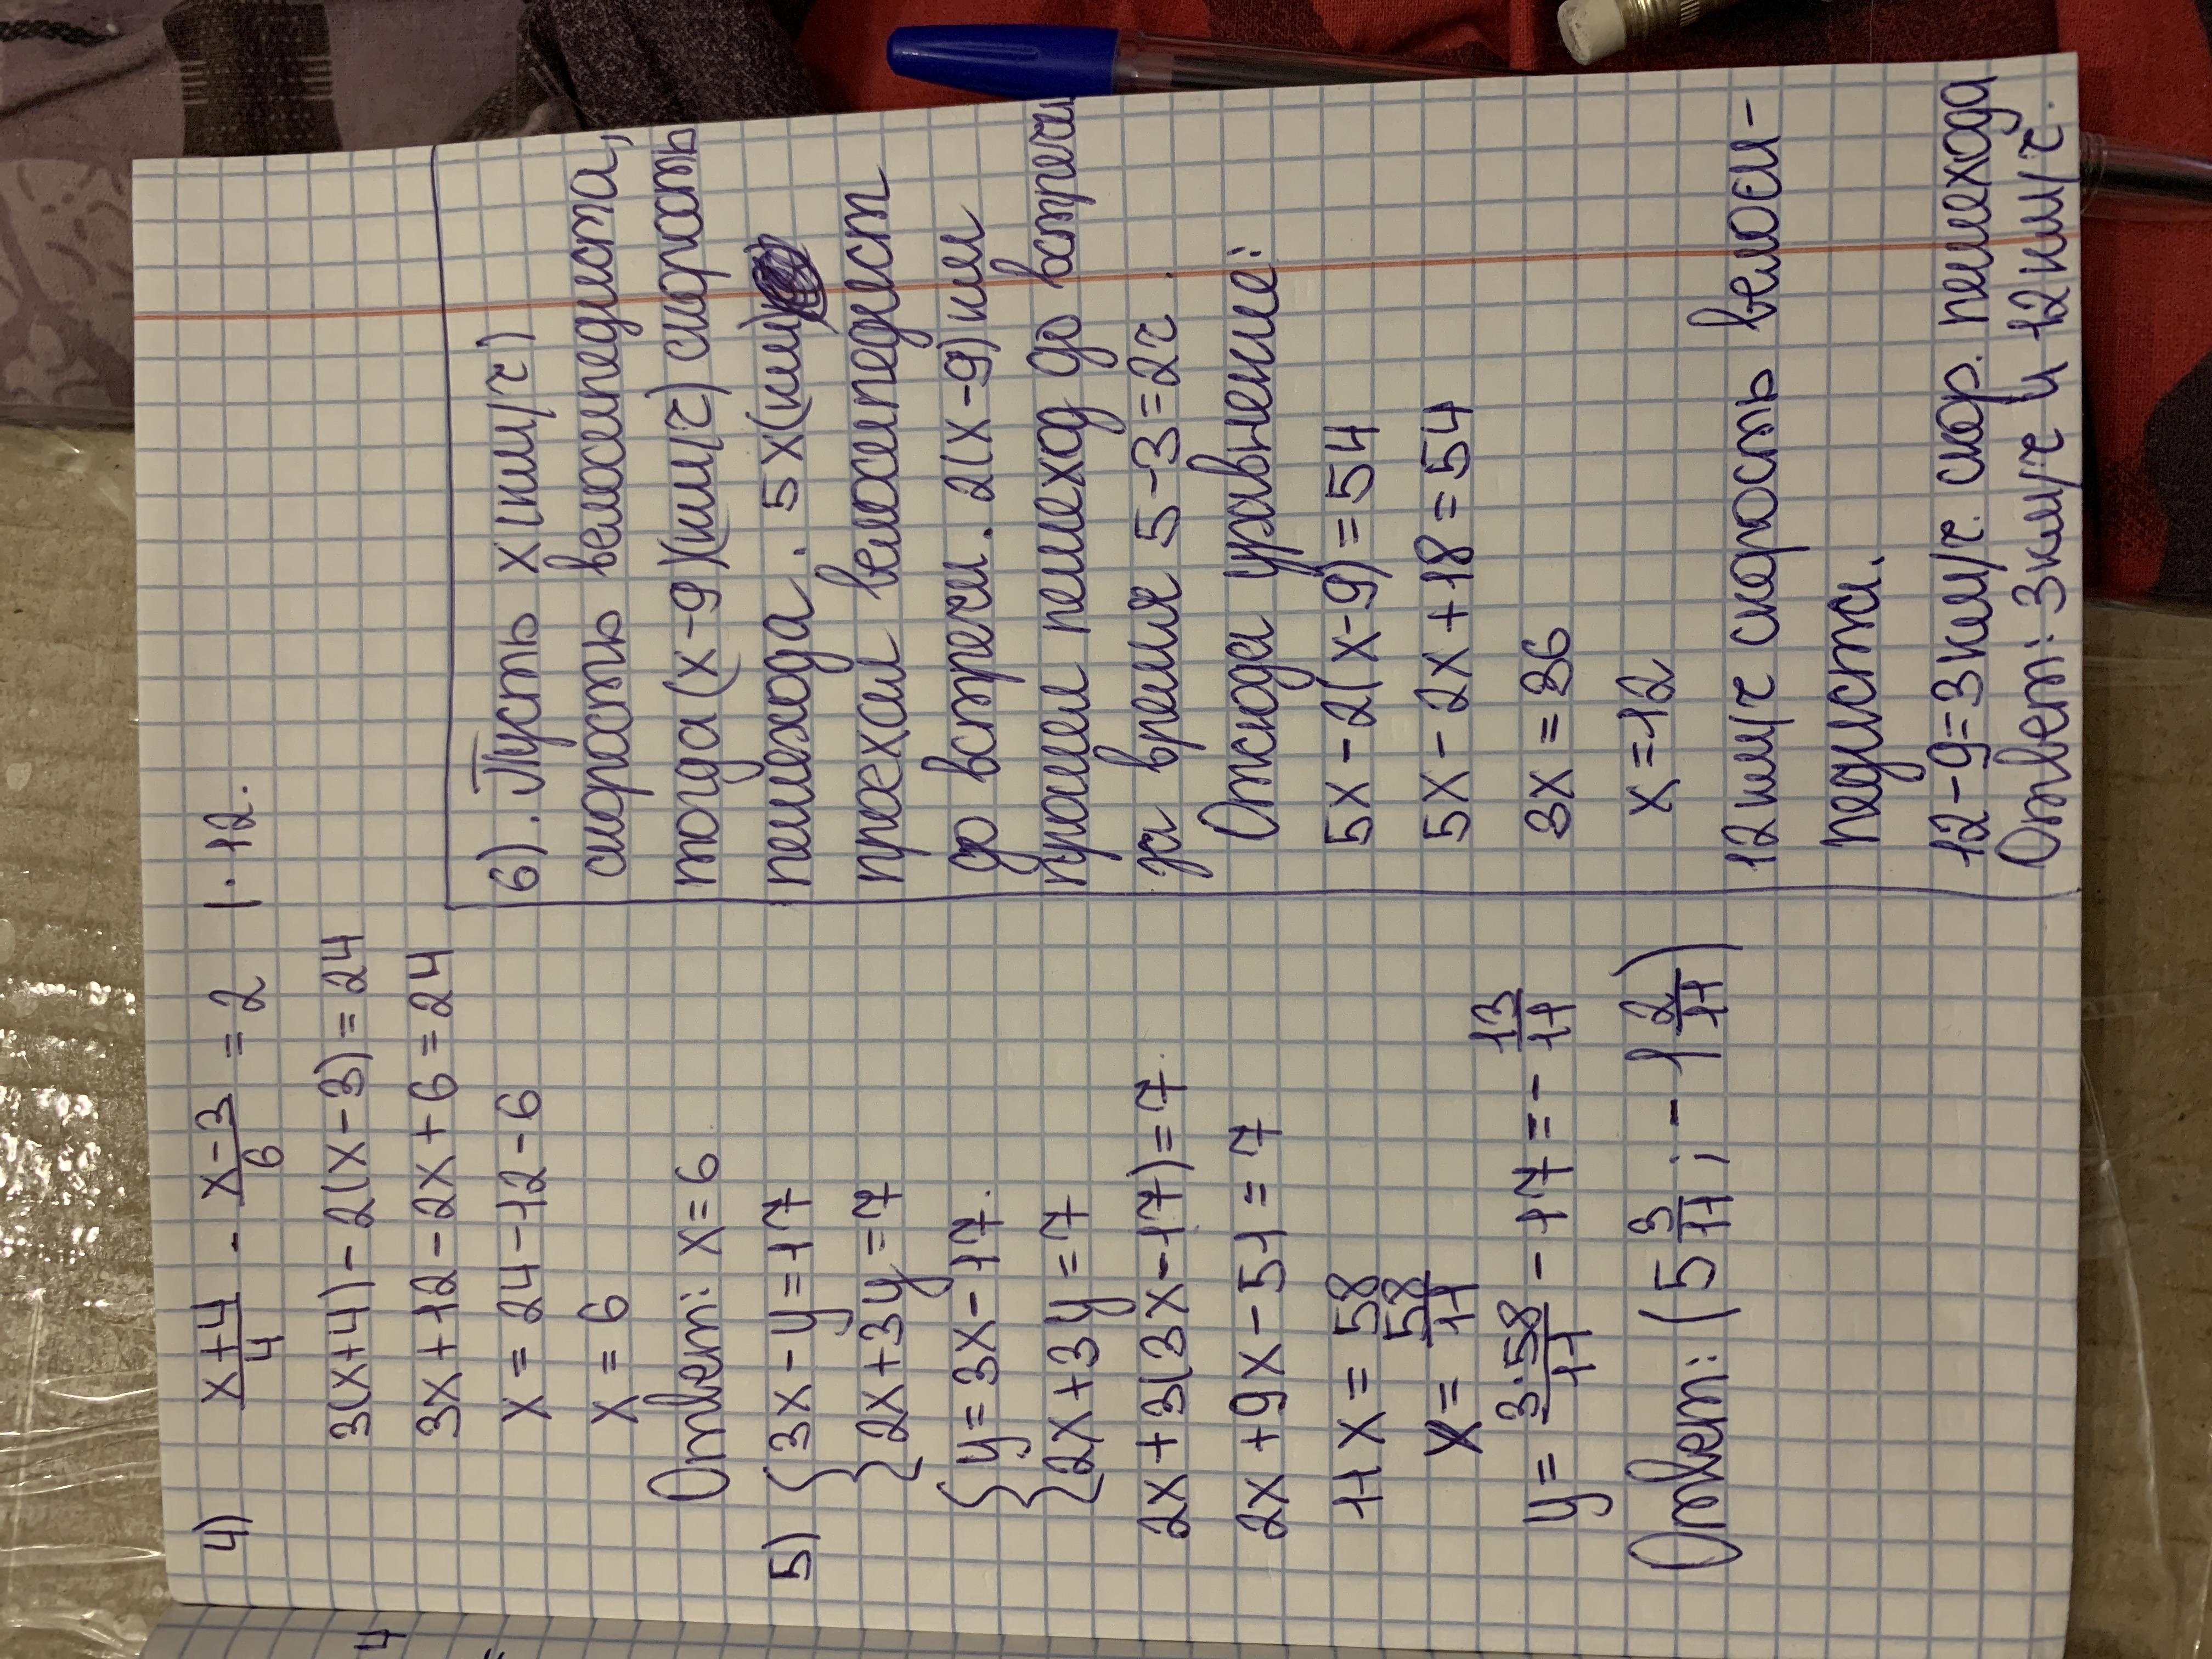 4) (x+4)/4 - (x-3)/6 = 2 |·12.
3(x+4)-2(x-3)=24
3x+12-2x+6=24
x=24-12-6
x=6
Ответ: x=6
5) {3x-y=17
{2x+3y=7
{y=3x-17.
{2x+3y=7
2x+3(3x-17)=7.
2x+9x-51=7
11x=58
x=58/11
y=3·58/11-17=-13/11
Ответ: (5 3/11; -1 2/11)
6). Пусть x(км/ч)
скорость велосипедиста,
тогда (x-9)(км/ч) скорость
пешехода. 5x(км)
проехал велосипедист
до встречи. 2(x-9) км
прошел пешеход до встречи
за время 5-3=2ч.
Отсюда уравнение:
5x-2(x-9)=54
5x-2x+18=54
3x=36
x=12
12км/ч скорость велоси-
педиста.
12-9=3км/ч. скор. пешехода
Ответ: 3км/ч и 12км/ч.
4